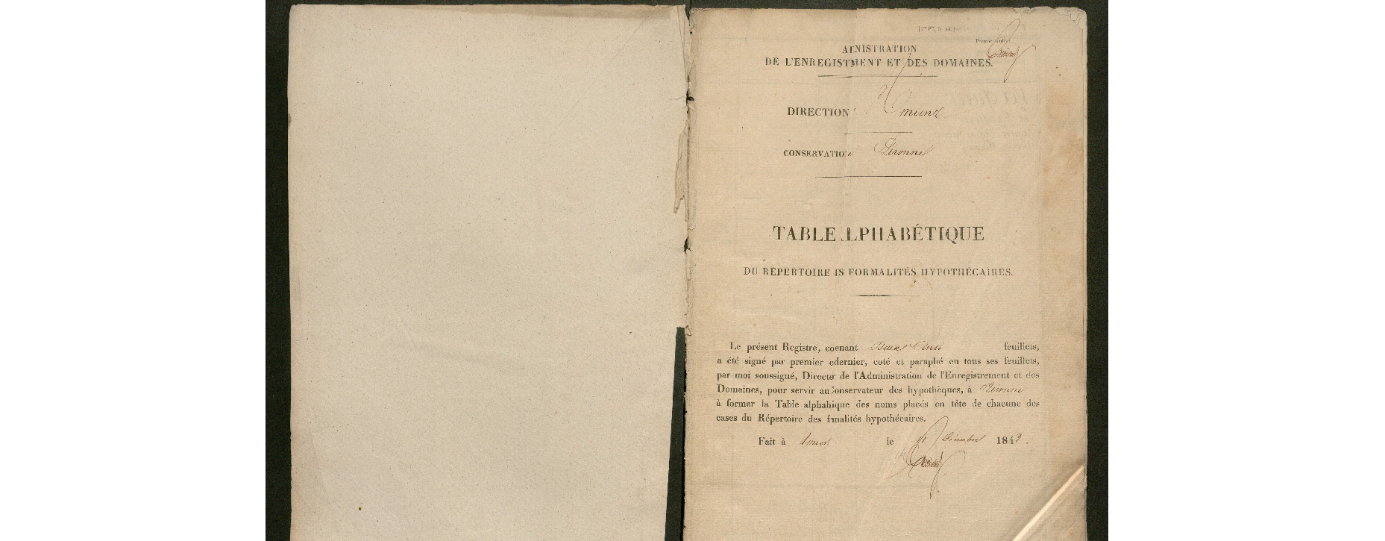 AINISTRATION
DE L'ENREGISTMENT ET DES DOMAINES.
DIRECTION
CONSERVATION Péronne
TABLE LPHABÉTIQUE
DU RÉPERTOIRE IS FORMALITÉS HYPOTHÉCAIRES.
Le présent Registre, coenant feuillets,
a été signé par premier edernier, coté et paraphé en tous ses feuillets,
par moi soussigné, Directer de l'Administration de l'Enregistrement et des
Domaines, pour servir au onservateur des hypothèques, à Péronne
à former la Table alphabique des noms placés en tête de chacune des
cases du Répertoire des frmalités hypothécaires.
Fait à le Décembre 184